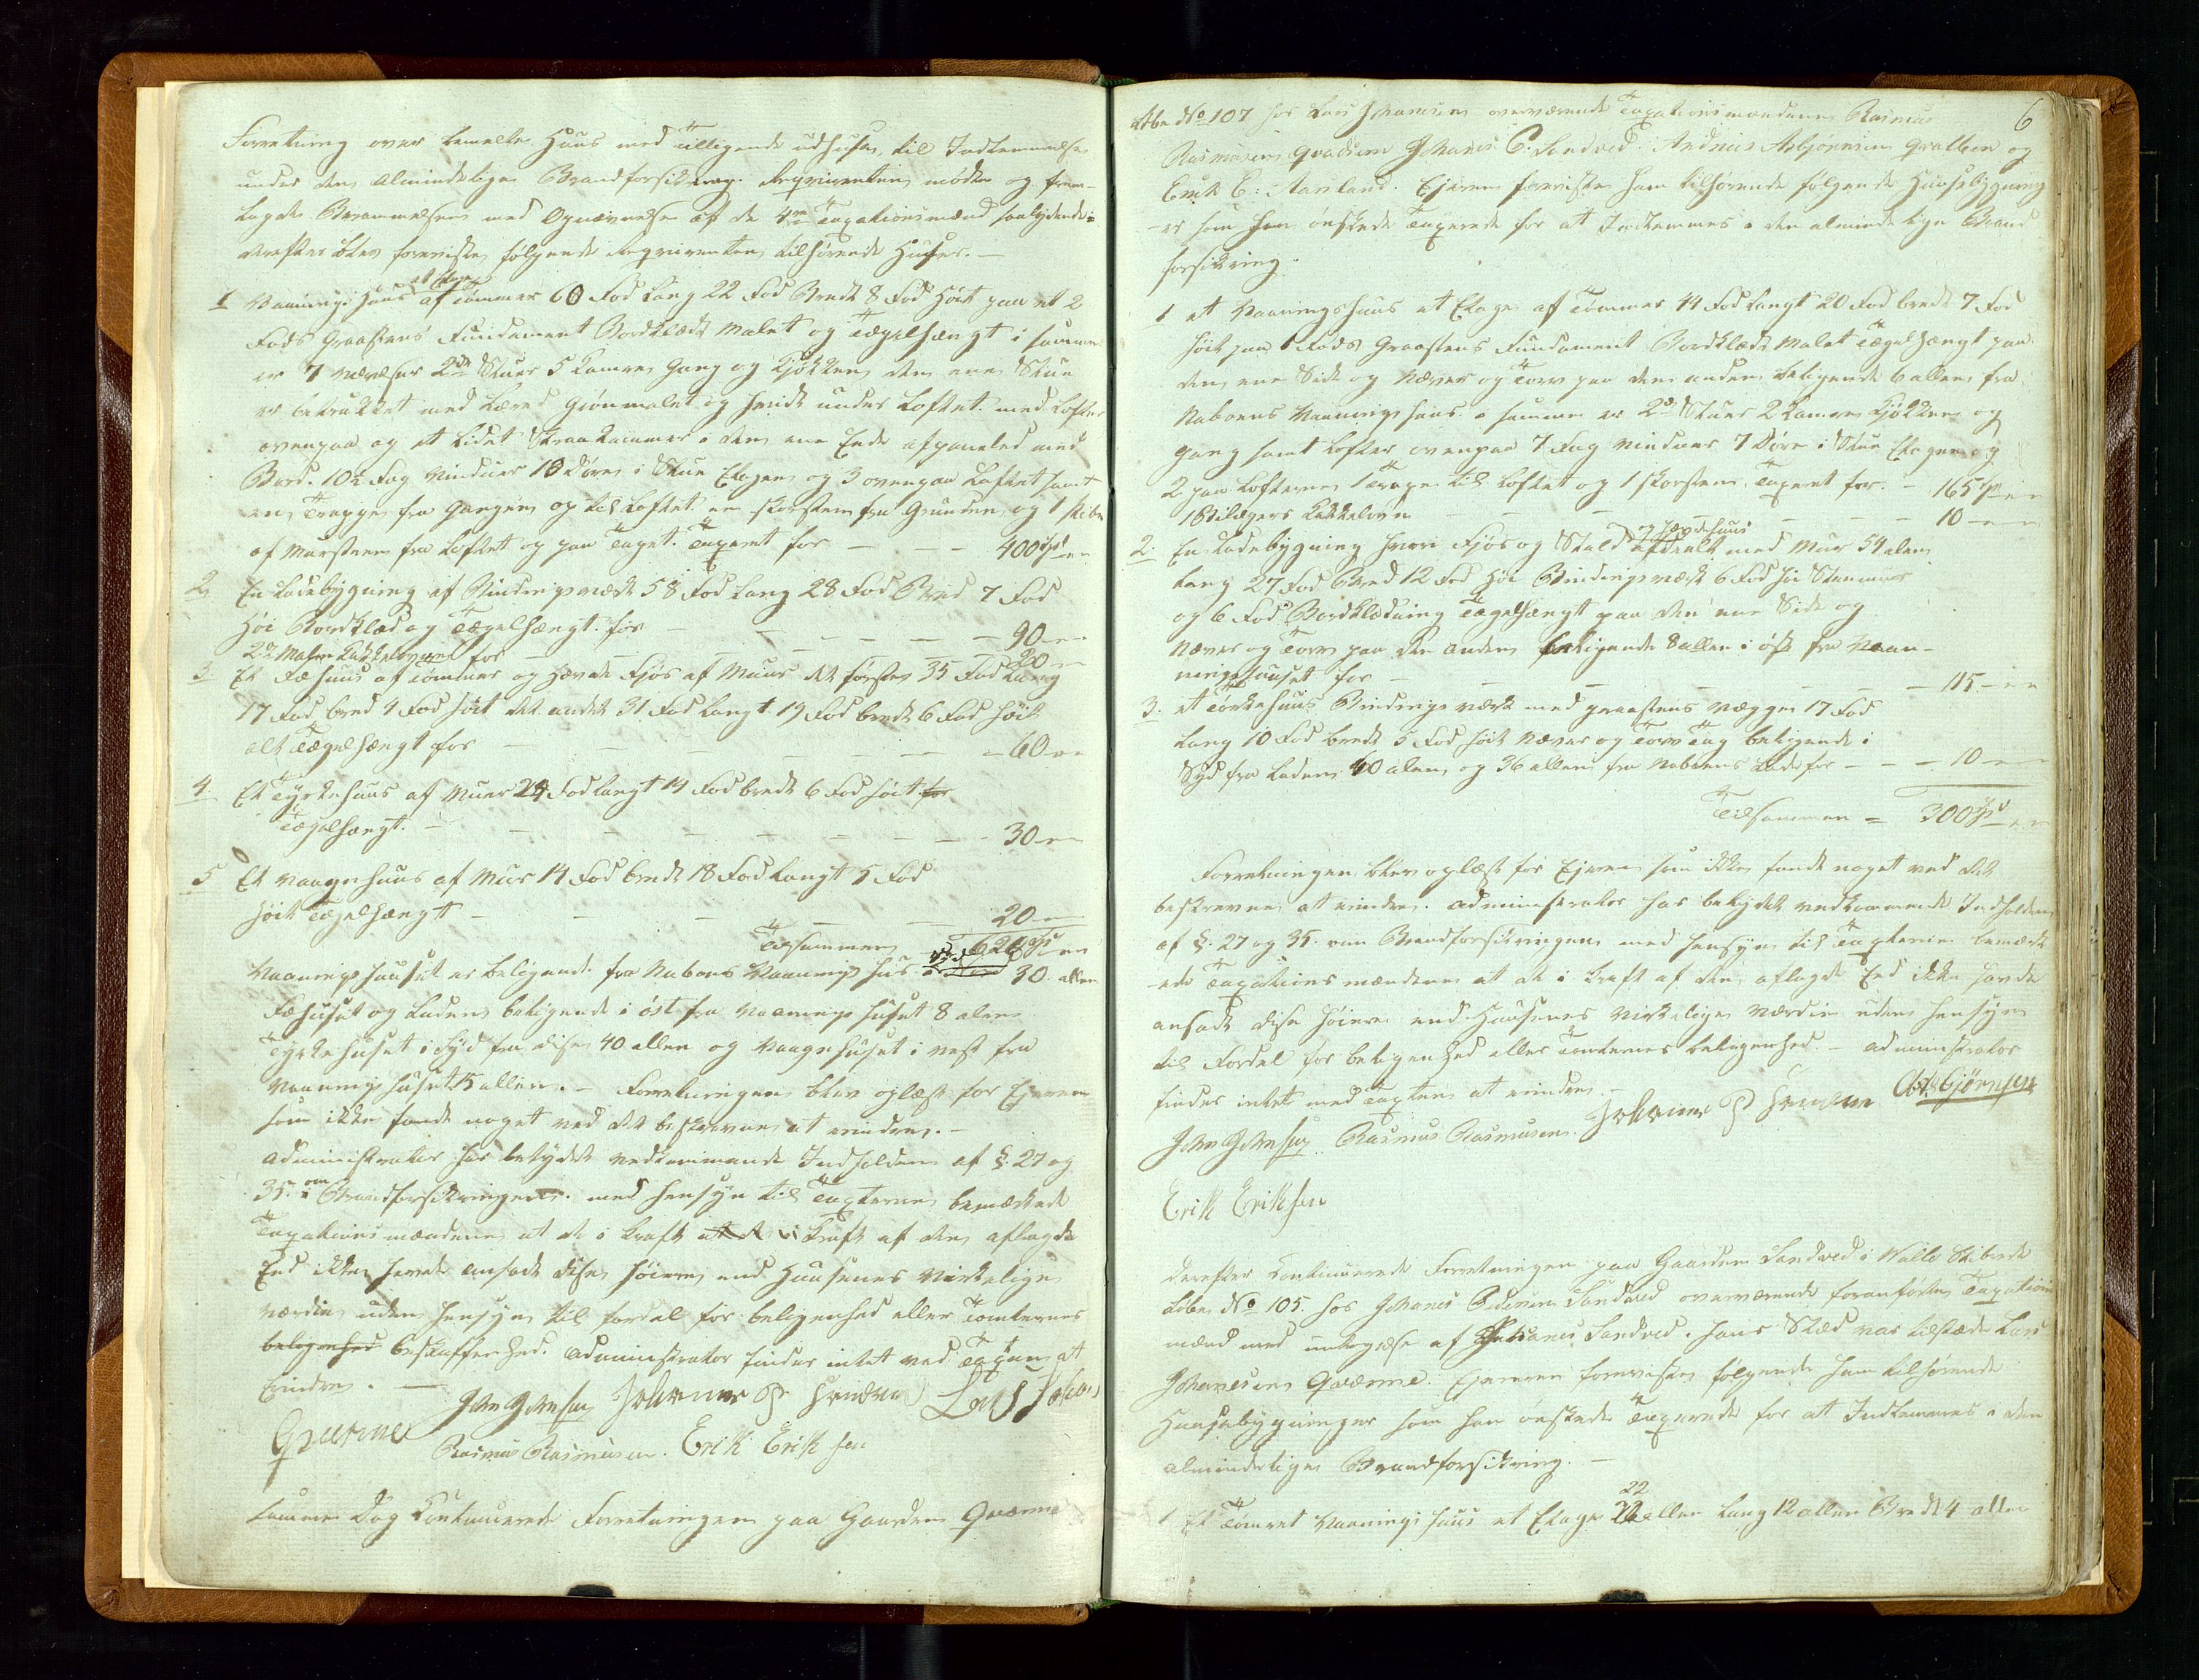 Forretning over bemeldte Huus med tilligende udhuse, til Indlemmelse
under den Almindelige Brandforsikring. Reqvirenten mødte og frem-
lagde Berammelsen med Opnævnelse af de 4re Taxationsmænd saalydende
derefter blev foreviste følgende Reqvirenten tilhørende Huuse. —
1 Vaanings Huus et Etage af Tømmer 60 Fod Lang 22 Fod Bredt 8 Fod Høit paa et 2
Fods Graasteens Fundament Bordklædt Malet og Tægelhængt i samme
er 7 Værelser 2de Stuer 5 Kamre Gang og Kjøkken den ene Stue
er betrukket med Lærred Grønmalet og hvidt under Loftet med Lofter
ovenpaa og et Lidet Skraakammer i den ene Ende afpaneled med
Bord. 10½ Fag Vinduer 10 Døre i Stue Etagen og 3 ovenpaa Loftet samt
en Trappe fra Gangen op til Loftet en Skorsteen fra Grunden og 1 Pibe
af Muursteen fra Loftet og paa Taget. Taxeret for — — 400 Spd
2 En Ladebygning af Bindingsværk 58 Fod Lang 28 Fod Bred 7 Fod
Høi Bordklæd og Tægelhængt for — — — — 90 —
2de Kakkelovne for — — — 20 —
3. Et Fæhuus af Tømmer og Søndre Fjøs af Muur det første 35 Fod Lang
17 Fod bred 4 Fod høit det andet 31 Fod Langt 19 Fod bredt 6 Fod høit
alt Tægelhængt for — — — 60 —
4. Et Tyrkehuus af Muur 24 Fod langt 14 Fod bredt 6 Fod høit for
Tægelhængt. — — — — 30 —
5 Et Vaagnhuus af Muur 14 Fod bredt 18 Fod Langt 5 Fod
høit Tægelhængt — — — 20 —
Tilsammen 620 Spd
Vaaningshuuset er beligende fra Naboens Vaanings hus 30 allen
Fæhuset og Laden beligende i øst fra Vaanings huset 8 alen
Tyrkehuset i Syd fra disse 40 allen og Vaagnhuset i vest fra
Vaaningshuset 15 allen. — Forretningen blev oplæst for Ejeren
som ikke fandt noget ved det beskrevne at erindre. —
Administrator har betydet vedkommende Indholden af §. 27 og
35 om Brandforsikringen. med hensyn til Taxterne bemærkede
Taxationsmændene at de i Kraft at de i Kraft af den aflagde
Eed ikke havde ansadt disse høiere end Huusenes Virkelige
værdie uden hensyn til fordel for beligenhed eller Tomternes
beligenhed beskaffenhed. Administrator finder intet ved Taxten at
Erindre. —
John Johnsen Johannes P Sendved Lars Johans
Qværne Rasmus Rasmusen. Erik Eriksen
Samme Dag Continuerede Forretningen paa Gaarden Qværne
6
Løbe No 107 hos Lars Johanesen overværende Taxationsmændene Rasmus
Rasmusen Johanes P. Sandved. Andreas Asbjørnsen og
Erik E. Aarsland. Ejeren foreviste ham tilhørende følgende Huusebygning
er som han ønskede Taxerede for at Indlemmes i den almindelige Brand
forsikring.
1 et Vaaningshuus et Etage af Tømmer 44 Fod langt 20 Fod bredt 7 Fod
høit paa 1 Fods Graasteens Fundament Bordklædt Malet Tægelhængt paa
den ene Side og Næver og Torv paa den anden beligende 6 allen fra
Naboens Vaanings huus i samme er 2de Stuer 2 Kamre Kjøkken og
Gang samt Lofter ovenpaa 7 Fag Vinduer 7 Døre i Stue Etagen og
2 paa Lofterne 1 Trappe til Loftet og 1 skorsteen. Taxeret for. — 165 Spd
1 Bilæggers Kakkelovn — — — 10 —
2. En Ladebygning hvori Fjøs og Stald afdeelt med Muur 54 alen
lang 27 Fod Bred 12 Fod høi Bindingsværk 6 Fod høi Steenmuur
og 6 Fod Bordklædning Tægelhængt paa den ene Side og
Næver og Torv paa den anden beligende 8 allen i øst fra Vaan-
ningshuuset for — — — 115 —
3. et Torkehuus Bindingsværk med graasteens Vægge 17 Fod
Lang 10 Fod bredt 5 Fod høit Næver og Torv Tag beligende i
Syd fra Laden 40 alen og 36 allen fra Naboens Lade for — — 10 —
Tilsammen = 300 Spd
Forretningen blev oplæst for Ejeren som ikke fandt noget ved det
beskrevne at erindre. Administrator har betydet vedkommende Indholden
af §. 27 og 35. om Brandforsikringen med hensyn til Taxterne bemærk
ede Taxationsmændene at de i Kraft af den aflagde Eed ikke havde
ansadt disse høiere end Huusenes virkelige værdie uden hensyn
til Fordel for beligenhed eller Tomternes beligenhed. — Administrator
finder intet ved Taxten at erindre. —
John Johnsen Rasmus Rasmusen. Johannes P Sendven Asbjørnsen
Erik Eriksen
Derefter Continuerede Forretningen paa Gaarden Sandved i Skibrede
Løbe No 105. hos Johanes Pedersen Sandved overværende foranførte Taxations
mænd med undtagelse af Johanes Sandved. hans Sted var tilstæde Lars
Johanesen Qværne. Ejeren foreviste følgende ham tilhørende
Huusebygninger som han ønskede Taxerede for at Indlemmes i den
almindelige Brandforsikring. —
1 Et Tømret Vaanings huus et Etage 22 allen Lang 12 allen Bredt 4 allen